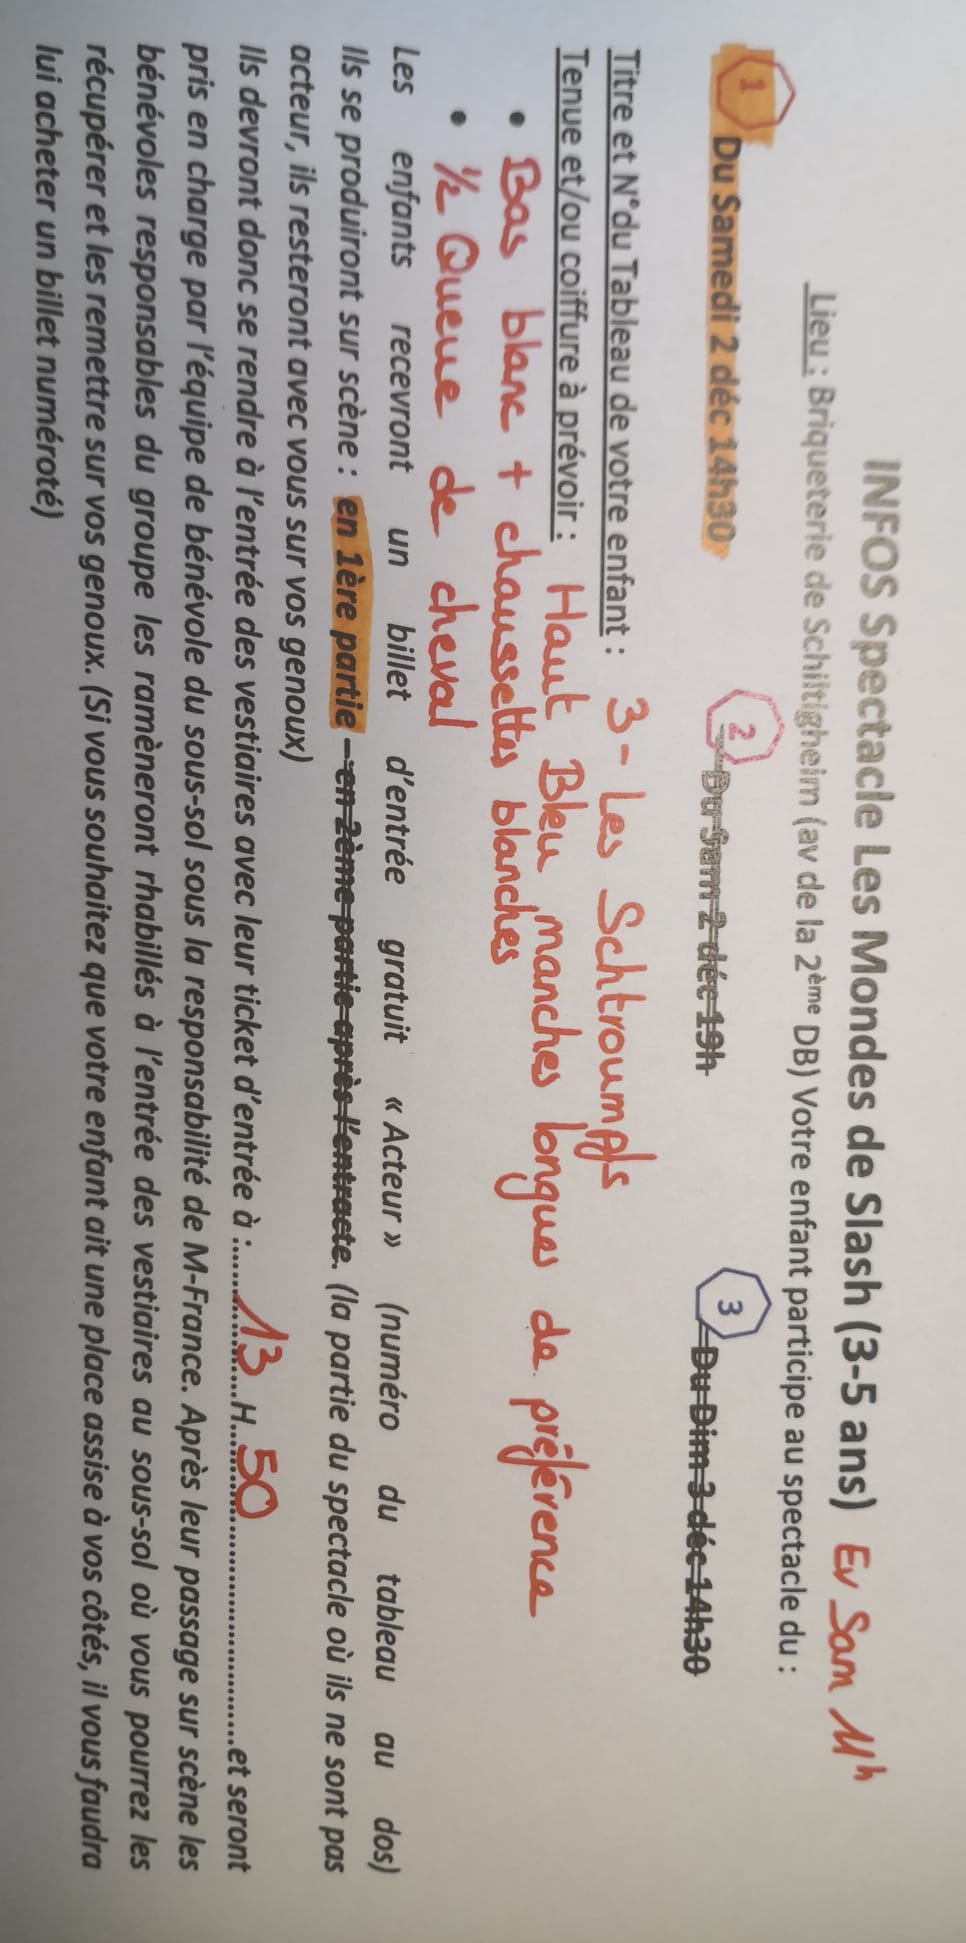 INFOS Spectacle Les Mondes de Slash (3-5 ans) Ev Sam 11h
Lieu : Briqueterie de Schiltigheim (av de la 2ème DB) Votre enfant participe au spectacle du :
1 Du Samedi 2 déc 14h30 2 Du Sam 2 déc 19h 3 Du Dim 3 déc 14h30
Titre et N°du Tableau de votre enfant : 3- Les Schtroumpfs
Tenue et/ou coiffure à prévoir : Haut Bleu manches longues de préférence
• Bas blanc + chaussettes blanches
• ½ Queue de cheval
Les enfants recevront un billet d'entrée gratuit « Acteur » (numéro du tableau au dos)
Ils se produiront sur scène : en 1ère partie - en 2ème partie après l'entracte. (la partie du spectacle où ils ne sont pas
acteur, ils resteront avec vous sur vos genoux)
Ils devront donc se rendre à l'entrée des vestiaires avec leur ticket d'entrée à :......13......H......50......et seront
pris en charge par l'équipe de bénévole du sous-sol sous la responsabilité de M-France. Après leur passage sur scène les
bénévoles responsables du groupe les ramèneront rhabillés à l'entrée des vestiaires au sous-sol où vous pourrez les
récupérer et les remettre sur vos genoux. (Si vous souhaitez que votre enfant ait une place assise à vos côtés, il vous faudra
lui acheter un billet numéroté)